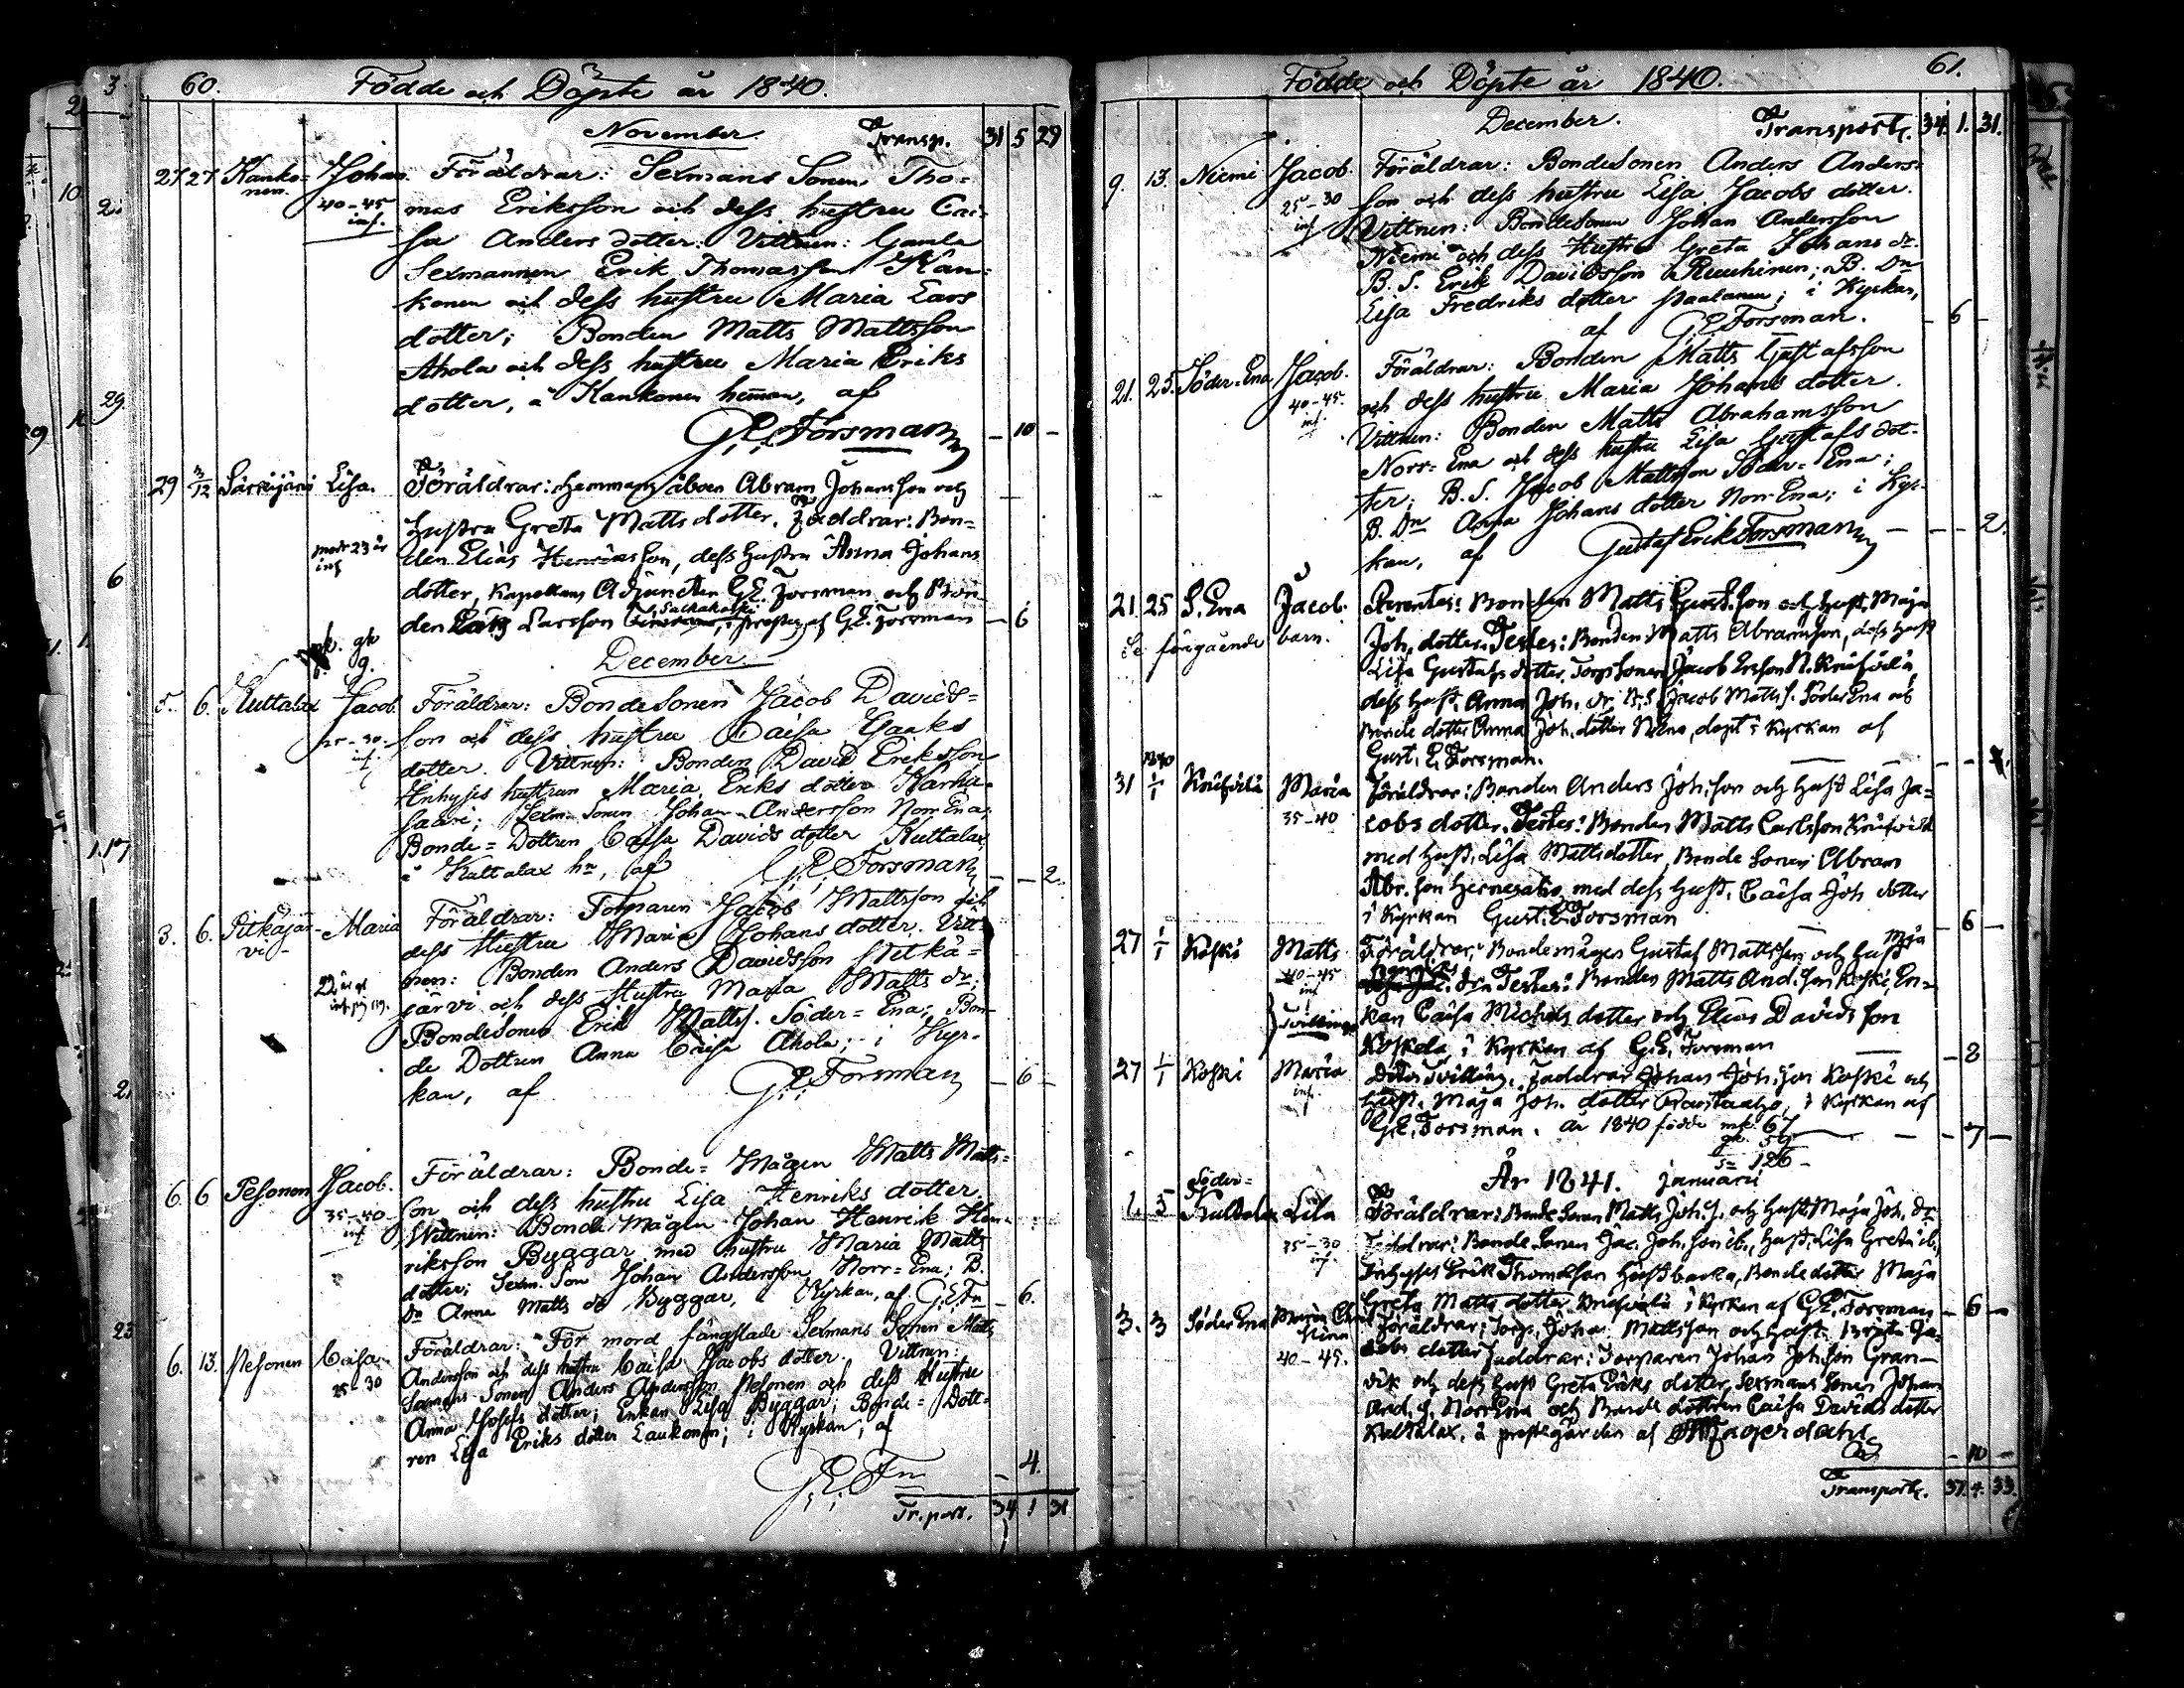 60. Födde och Döpte år 1840.
November. Transp. 31 5 29
27 27 Kanko= Johan Föräldrar: Sexmans Sonen Tho=
nen. 40-45 mas Eriksson och dess hustru Cai=
inf. sa Anders dotter. Vittnen: Gamla
Sexmannen Erik Thomasson Kan=
konen och dess hustru Maria Lars
dotter; Bonden Matts Mattsson
Ahola och dess hustru Maria Eriks
dotter, å Kankonen heman, af
G. E. Forsman - 10 -
29 3/12 Särkijärvi Lisa. Föräldrar: Hemmans åboen Abram Johansson och
Hustru Greta Matts dotter. Faddrar: Bon=
modr 23 år den Elias Henriksson, dess Hustru Anna Johans
inf dotter, Kapellans Adjuncten G.E. Forsman och Bon
den Lars Larsson af G.E. Forsman - 6
mk. gk
9. December
5. 6. Kuttalax Jacob. Föräldrar: Bondesonen Jacob Davids=
25-30 son och dess hustru Caisa Isaaks
inf. dotter. Vittnen: Bonden David Eriksson
Inhyses hustrun Maria Eriks dotter
saari; Sexm. Sonen Johan Andersson Norr Ena;
Bonde= Dottren Caisa Davids dotter Kuttalax,
å Kuttalax hn, af G. E. Forsman - - 2.
3. 6. Pitkäjär- Maria Föräldrar: Torparen Jacob Mattsson och
vi- dess Hustru Maria Johans dotter. Vitt=
nen: Bonden Anders Davidsson Pitkä=
22 år gl järvi och dess Hustru Maria Matts dr;
Bondesonen Erik Matts. Söder= Ena; Bon-
de Dottren Anna Caisa Ahola; i Kyr-
kan, af G. E. Forsman - 6 -
6. 6 Pesonen Jacob. Föräldrar: Bonde= Mågen Matts Matts=
35-40 son och dess hustru Lisa Henriks dotter.
inf Vittnen: Bonde Mågen Johan Henrik Hen-
riksson Byggar med hustru Maria Matts
dotter; Sexm. Son Johan Andersson Norr= Ena; B.
dn Anna Matts dr Byggar, i Kyrkan, af G.E.Fn - 6.
6. 13. Pesonen Caisa Föräldrar: För mord fängslade Sexmans Sonen Matts
25-30 Andersson och dess hustru Caisa Jacobs dotter. Vittnen:
Sexmans Sonen Anders Andersson Pesonen och dess Hustru
Anna Josefs dotter; Enkan Lisa Byggar; Bonde= Dott=
ren Lisa Eriks dotter Laukonen; i Kyrkan, af
G. E. Fn - 4.
Tr.port. 34 1 31
61.
Födde och Döpte år 1840.
December. Transport. 34. 1. 31.
9. 13. Niemi Jacob. Föräldrar: Bondesonen Anders Anders=
25-30 son och dess hustru Lisa Jacobs dotter.
inf Vittnen: Bondesonen Johan Andersson
Niemi och dess Hustru Greta Johans dr
B. S. Erik Davidsson Ruuhinen; B. Dn
Lisa Fredriks dotter Paalanen; i Kyrkan,
af G. E. Forsman. - 6 -
21. 25. Söder=Ena Jacob. Föräldrar: Bonden Matts Gustafsson
40-45. och dess hustru Maria Johans dotter.
inf. Vittnen: Bonden Matts Abrahamsson
Norr= Ena och dess hustru Lisa Gustafs dot-
ter; B. S. Jacob Mattsson Söder= Ena;
B. Dn Anna Johans dotter Norr-Ena; i Kyr-
kan, af Gustaf Erik Forsman - - - 2.
21. 25 S. Ena Jacob. Parentes: Bonden Matts Gust. son och Hust. Maja
Se föregående barn. Joh. dotter. Testes: Bonden Matts Abramsson, dess Hust
Lisa Gustafs dotter, Torp Sonen Jacob N. Kniivilä,
dess Hust. Anna Joh. dr. B.S. Jacob Matts S. Söder Ena och
Bonde dotter Anna Joh. dotter N. Ena, döpt i Kyrkan af
Gust. E. Forsman. - -
1840
31 1/1 Kniivilä Maria Föräldrar: Bonden Anders Joh. son och Hust Lisa Ja=
35-40 cobs dotter. Testes: Bonden Matts Carlsson Kniivilä
med Hust. Lisa Mattsdotter, Bonde Sonen Abram
Abr. son Hernesaho med dess Hust. Caisa Joh dotter
i Kyrkan Gust. E. Forsman - 6 -
27 1/1 Koski Matts Föräldrar: Bondemågen Gustaf Mattsson och Hust Maja
40-45 drn Testes: Bonden Matts And. son Koski, En-
inf kan Caisa Michels dotter och Elias Davids son
Tvillingar Koskela, i Kyrkan af G.E. Forsman - 8
27 1/1 Koski Maria Ditos Tvilling. Faddrar Johan Joh. son Koski och
inf. Hust. Maja Joh. dotter Rautaaho, i Kyrkan af
G.E. Forsman. år 1840 födde mk. 67 - - 7 -
gk. 59
S= 126 -
År 1841. Januarii
Söder=
1. 5 Kuttalax Lisa Föräldrar: Bonde Sonen Matts Joh. S. och Hust Maja Joh. dr
25-30 Faddrar: Bonde Sonen Jac. Joh. son ib., Hust. Lisa Greta ib.,
inf. Inhyses Erik Thomasson Hästbacka, Bonde dotter Maja
Greta Matts dotter Kniivilä i Kyrkan af G.E. Forsman - 6 -
3. 3 Söder Ena Maria Chri Föräldrar; Torp. Johan Mattsson och Hust. Brita Ja=
stina cobs dotter Faddrar: Torparen Johan Joh. son Gran-
40-45. vik och dess Hust Greta Eriks dotter, Sexmans Sonen Johan
And. S. Norr Ena och Bonde dottren Caisa Davids dotter
Kuttalax, å prestegården af Fagerdahl
- 10 -
Transport. 37. 4. 33.